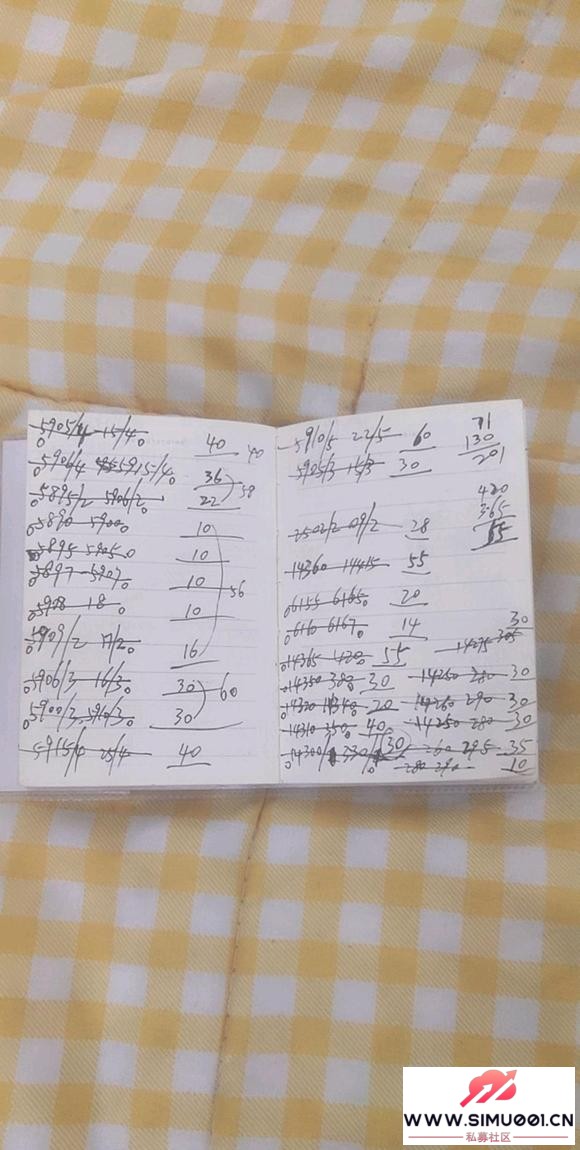 5905/4 15/4 40 40
5906/4 5915/4 36 58
5895/2 5906/2 22
5890 5900 10
5895 5905 10
5897 5907 10 56
5908 18 10
5909/2 17/2 16
5906/3 16/3 30 60
5900/3 5910/3 30
5915/4 25/4 40
5910/5 22/5 60
5905/3 15/3 30
71
130
201
420
365
55
2502/2 09/2 28
14360 14415 55
6155 6165 20
6160 6167 14
14365 1420 55 14275 305 30
14350 380 30 14250 280 30
14320 14340 20 14260 290 30
14310 350 40 14250 280 30
14300 330 30 260 295 35
280 290 10
WWW.SIMU001.CN
私募社区